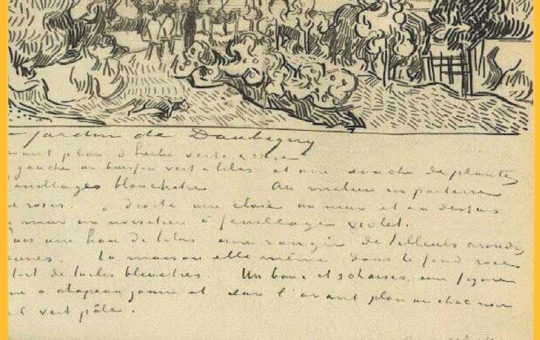 jardin de Daubigny
avant plan d'herbe verte & rose
gauche un buisson vert & lilas et une souche de plantes
feuillages blanchâtres Au milieu un parterre
de roses. à droite une claie un mur et au dessus
mur un noisetier à feuillage violet.
puis une haie de lilas une rangée de tilleuls arrondis
jaunes. La maison elle même dans le fond rose
toit de tuiles bleuâtres Un banc et 3 chaises une figure
à chapeau jaune et sur l'avant plan un chat noir
ciel vert pâle.